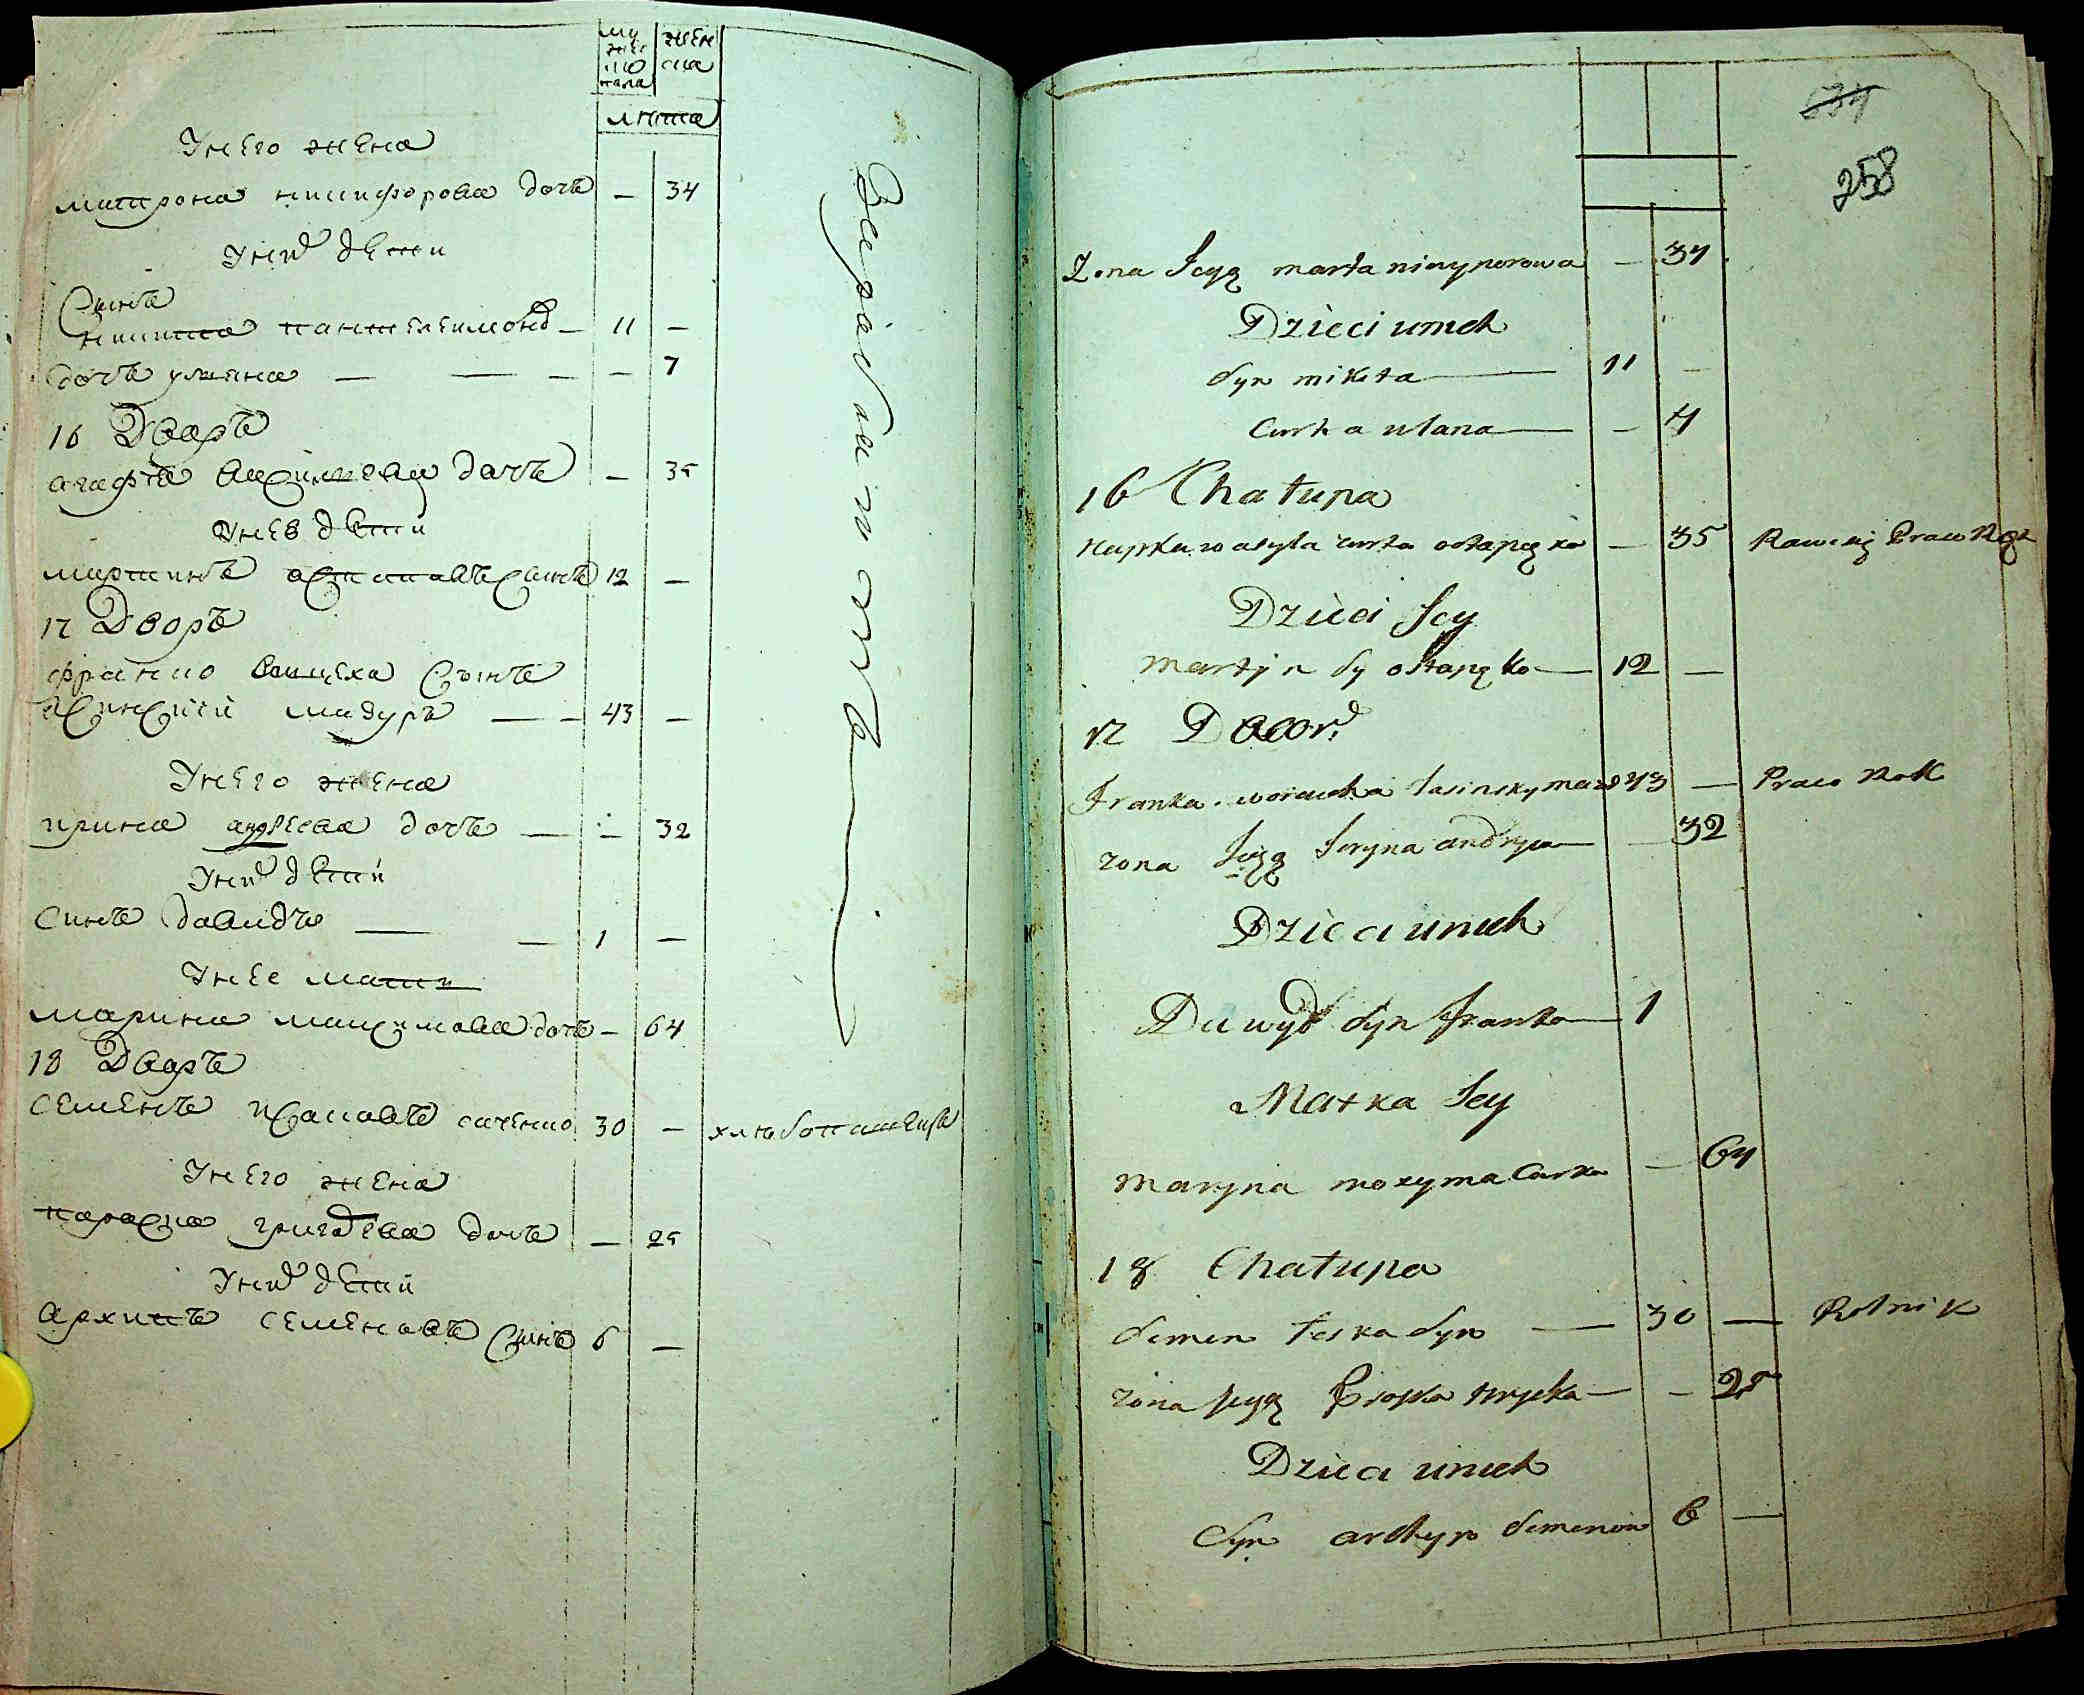 му
жес
ко
пола
жен
ска
лѣта
У него жена
матрона никифорова дочь — 34
У них дѣти
Сынъ
никита пантелеимонов — 11 —
дочь уляна — — — — 7
16 Дворъ
агафия дочь — 35
У нее дѣти
мартинъ остаповъ сынъ 12 —
17 Дворъ
франко воицеха сынъ
ясинский мазуръ — — 43 —
У него жена
ирина андреева дочь — — 32
У них дѣти
синъ давидъ — — 1 —
У нее мати
марина максимова дочь — 64
18 Дворъ
семенъ исаковъ 30 — хлѣбопашецъ
У него жена
параска григорева дочь — 25
У них дѣти
архипъ семеновъ сынъ 6 —
Зарабатовъ
258
Zona Jego marta niczyporowa — 34
Dzieci unich
Syn mikita — 11 —
Curka ulana — — 7
16 Chałupa
wasyla curka ostapczka — 35
Dzieci Jey
Martyn sy ostapczko — 12 —
17 Dwor
Franka woiciecha Jasinsky mazur 43 — Praco Rok
zona Jego Jeryna andryia — — 32
Dzieci unich
Dawyd Syn franka — 1
Matka Jey
Maryna moxyma Curka — 64
18 Chałupa
Semen Jeska Syn — 30 — Rolnik
zona Jego Proska hrycka — — 25
Dzieci unich
Syn archyp Semenow 6 —